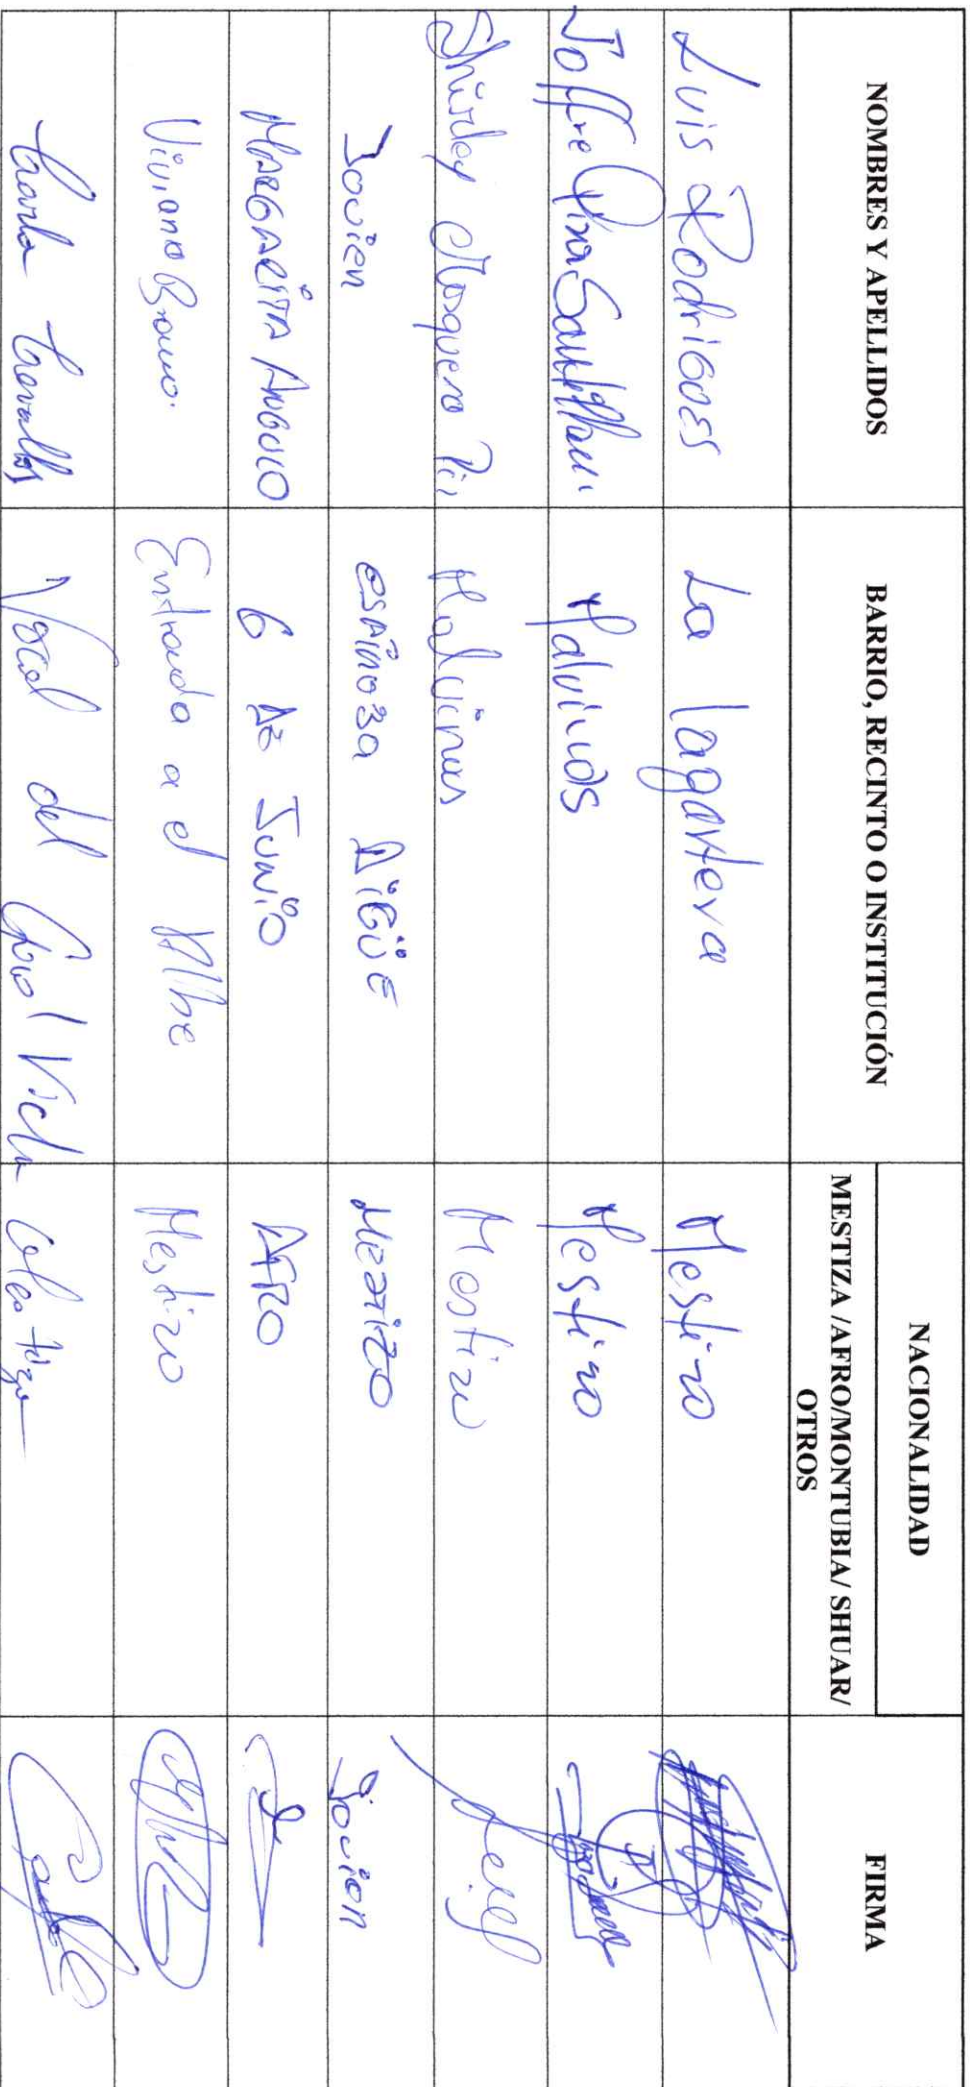 NOMBRES Y APELLIDOS BARRIO, RECINTO O INSTITUCIÓN NACIONALIDAD FIRMA
MESTIZA /AFRO/MONTUBIA/ SHUAR/
OTROS
Luis Rodrigoes La lagartera Mestizo
Joffre Malvinas Mestizo
Shirley Mosquera Malvinas Mestizo
Javier espinoza Mestizo Javier
MARGARITA ANGULO 6 de Junio AFRO
Viviana Entrada a el Mestizo
Carla Cevallos Vocal del